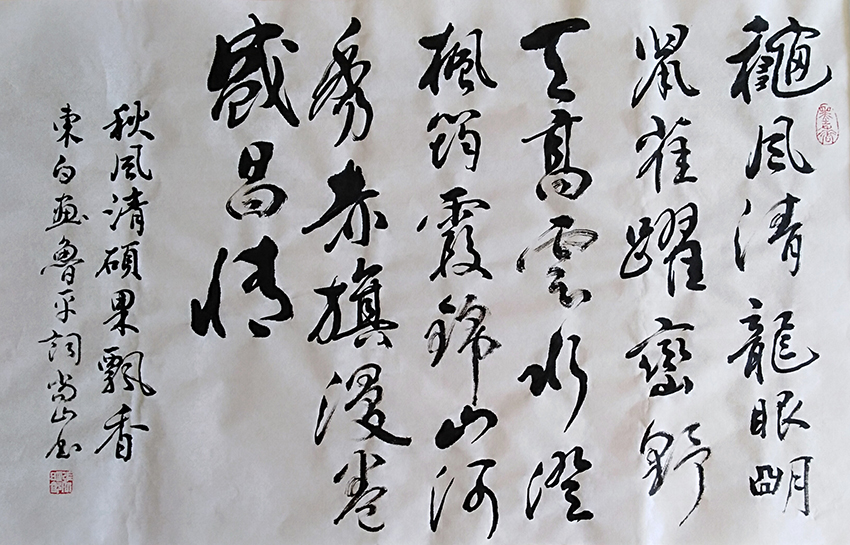 龝風清龍眼朙
鼠雀躍巒野
天高雲水澄
楓筠霞錦山河
秀赤旗漫卷
盛昌情
秋風清碩果飄香
東白畫魯平詞尚山书